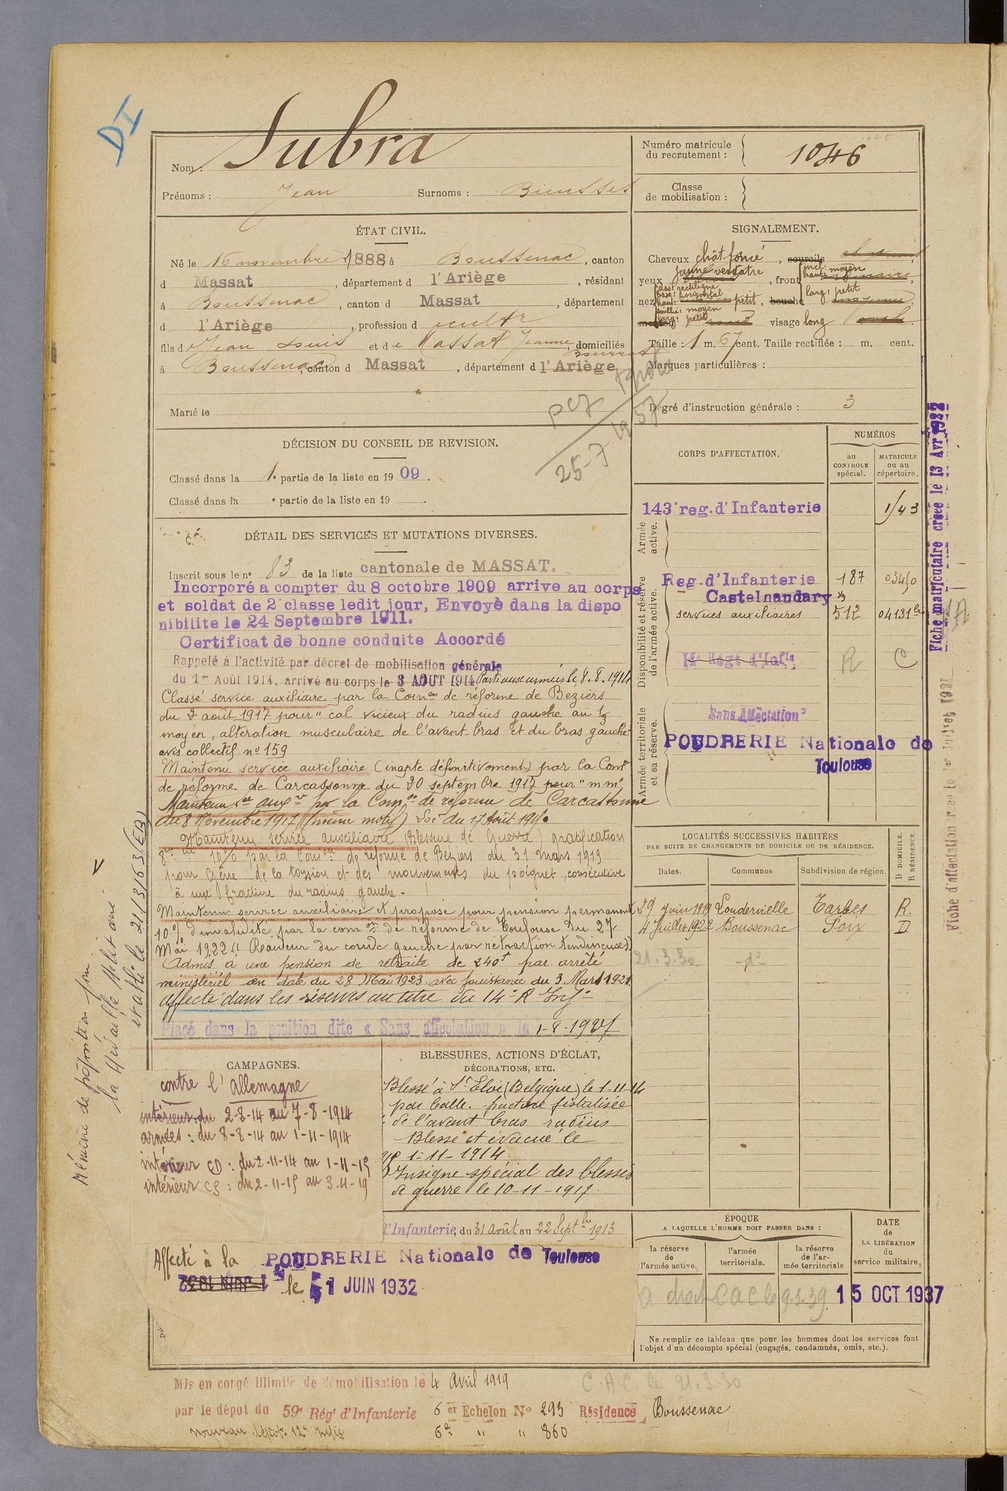 DI
Nom : Subra
Prénoms : Jean Surnoms :
Numéro matricule du recrutement : 1046
Classe de mobilisation :
ÉTAT CIVIL.
Né le 16 novembre 1888, à Boussenac, canton
d Massat, département d l'Ariège, résidant
à Boussenac, canton d Massat, département
d l'Ariège, profession d
fils d Jean Louis et d e Massat Jeanne, domiciliés
à Boussenac, canton d Massat, département d l'Ariège
Marié le
SIGNALEMENT.
Cheveux chât. foncé, sourcils
yeux jaune verdâtre, front
nez petit, bouche
visage long
Taille : 1 m. 67 cent. Taille rectifiée : m. cent.
Marques particulières :
Degré d'instruction générale : 3
25-7 1937
DÉCISION DU CONSEIL DE REVISION.
Classé dans la 1. partie de la liste en 19 09.
Classé dans la . partie de la liste en 19 .
DÉTAIL DES SERVICES ET MUTATIONS DIVERSES.
Inscrit sous le n° 83 de la liste cantonale de MASSAT.
Incorporé à compter du 8 octobre 1909 arrive au corps
et soldat de 2e classe ledit jour, Envoyé dans la dispo
nibilite le 24 Septembre 1911.
Certificat de bonne conduite Accordé
Rappelé à l'activité par décret de mobilisation générale
du 1er Août 1914, arrivé au corps le 3 AOUT 1914 Parti aux armées le 8.8.1914
Classé service auxiliaire par la Comon de réforme de Béziers
du 2 août 1917 pour "cal vicieux du radius gauche au 1/3
moyen, altération musculaire de l'avant bras et du bras gauche
avis collectif n° 159
Maintenu service auxiliaire (inapte définitivement) par la Comon
de réforme de Carcassonne du 20 septembre 1917 pour "m m"
Maintenu sce auxre par la Comon de réforme de Carcassonne
du 8 Novembre 1917 (même motif)
Maintenu service auxiliaire (Blessure de Guerre) gratification
10% par la Comon de réforme de Béziers du 31 mars 1919
pour Gêne de la torsion et des mouvements du poignet, consécutive
à une fracture du radius gauche.
Maintenu service auxiliaire et proposé pour pension permanente
10% d'invalidité par la comon de réforme de Toulouse du 27
Mai 1922
Admis à une pension de retraite de 240f par arrêté
ministériel en date du 28 Mai 1923 avec jouissance du 3 Mars 1921
affecté dans les réserves au titre du 14e R. Inf.
Placé dans la position dite « Sans affectation » le 1-8-1927
CORPS D'AFFECTATION.
NUMÉROS
au CONTROLE spécial.
MATRICULE ou au répertoire.
Armée active.
143e reg. d'Infanterie
Disponibilité et réserve de l'armée active.
Reg. d'Infanterie 187
Castelnaudary
services auxiliaires 512
14e Régt d'Infie R C
Armée territoriale et sa réserve.
Sans Affectation
POUDRERIE Nationale de
Toulouse
Fiche matriculaire créée le 13 Avr 1932
LOCALITÉS SUCCESSIVES HABITÉES
PAR SUITE DE CHANGEMENTS DE DOMICILE OU DE RÉSIDENCE.
Dates. Communes Subdivision de région. D DOMICILE. R RÉSIDENCE.
29 Juin 1919 Loudervielle Tarbes R.
4 Juillet 1922 Boussenac Foix D
21.3.30 -do-
CAMPAGNES.
contre l'Allemagne
intérieur : du 2-8-14 au 7-8-1914
armées : du 8-8-14 au 1-11-1914
intérieur CD : du 2-11-14 au 1-11-15
intérieur CS : du 2-11-15 au 3-4-19
BLESSURES, ACTIONS D'ÉCLAT,
DÉCORATIONS, ETC.
Blessé à St Eloi (Belgique) le 1-11-14
par balle. fracture fistalisée
de l'avant bras radius
Blessé et évacué le
1-11-1914.
Insigne spécial des blessés
de guerre le 10-11-1917.
d'Infanterie, du 31 Août au 22 Septbre 1913
Affecté à la POUDRERIE Nationale de Toulouse
le 1 JUIN 1932
ÉPOQUE
A LAQUELLE L'HOMME DOIT PASSER DANS :
la réserve de l'armée active.
l'armée territoriale.
la réserve de l'armée territoriale
DATE de LA LIBÉRATION du service militaire.
a droit CAC le 9.3.39 15 OCT 1937
Ne remplir ce tableau que pour les hommes dont les services font
l'objet d'un décompte spécial (engagés, condamnés, omis, etc.).
Mémoire de proposition pour
la Médaille Militaire
établi le 21/3/63
Mis en congé illimité de démobilisation le 4 Avril 1919
C.A.C. le 21.3.30
par le dépôt du 59e Régt d'Infanterie 6 er Echelon No 293 Résidence Boussenac
6e " " 860